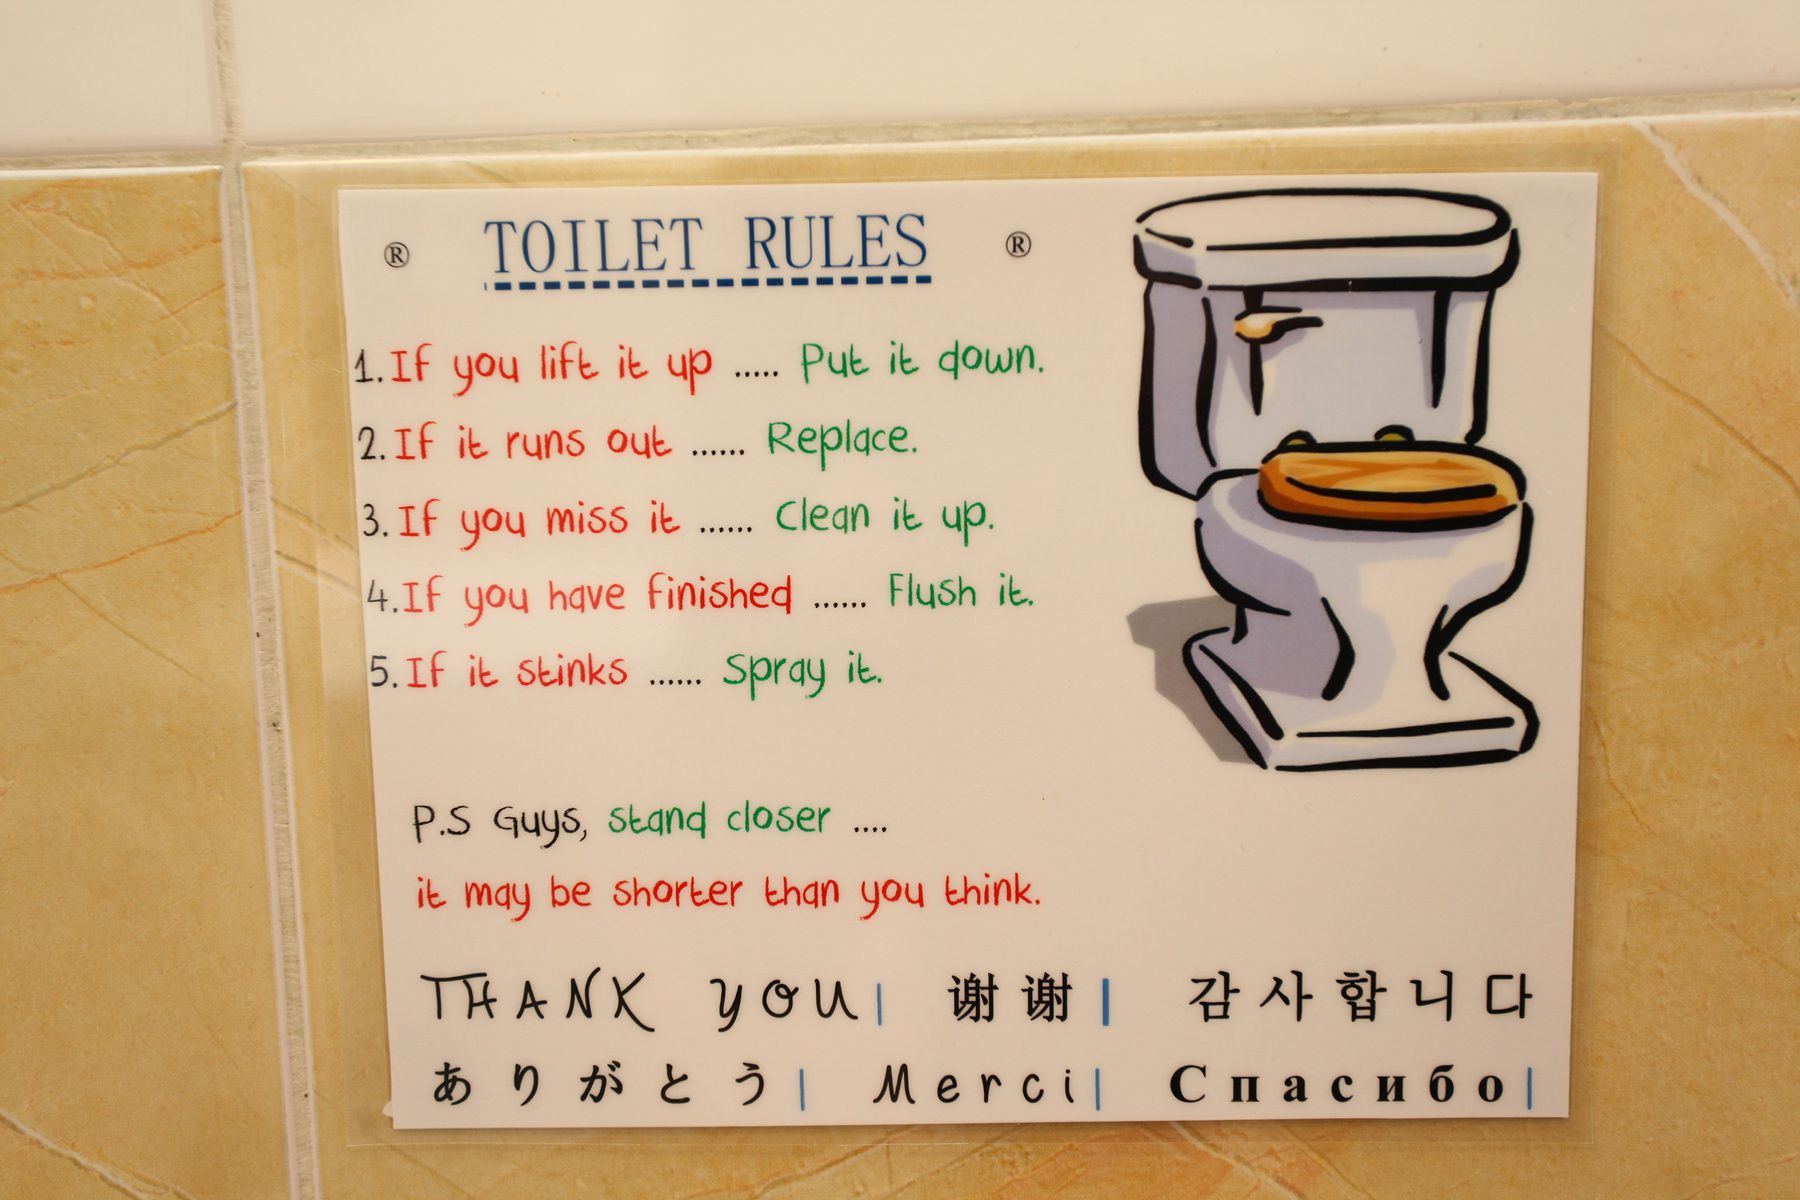 ® TOILET RULES ®
1. If you lift it up ..... Put it down.
2. If it runs out ...... Replace.
3. If you miss it ...... Clean it up.
4. If you have finished ...... Flush it.
5. If it stinks ...... Spray it.
P.S Guys, stand closer ....
it may be shorter than you think.
THANK YOU| 谢谢| 감사합니다
ありがとう| Merci| Спасибо|